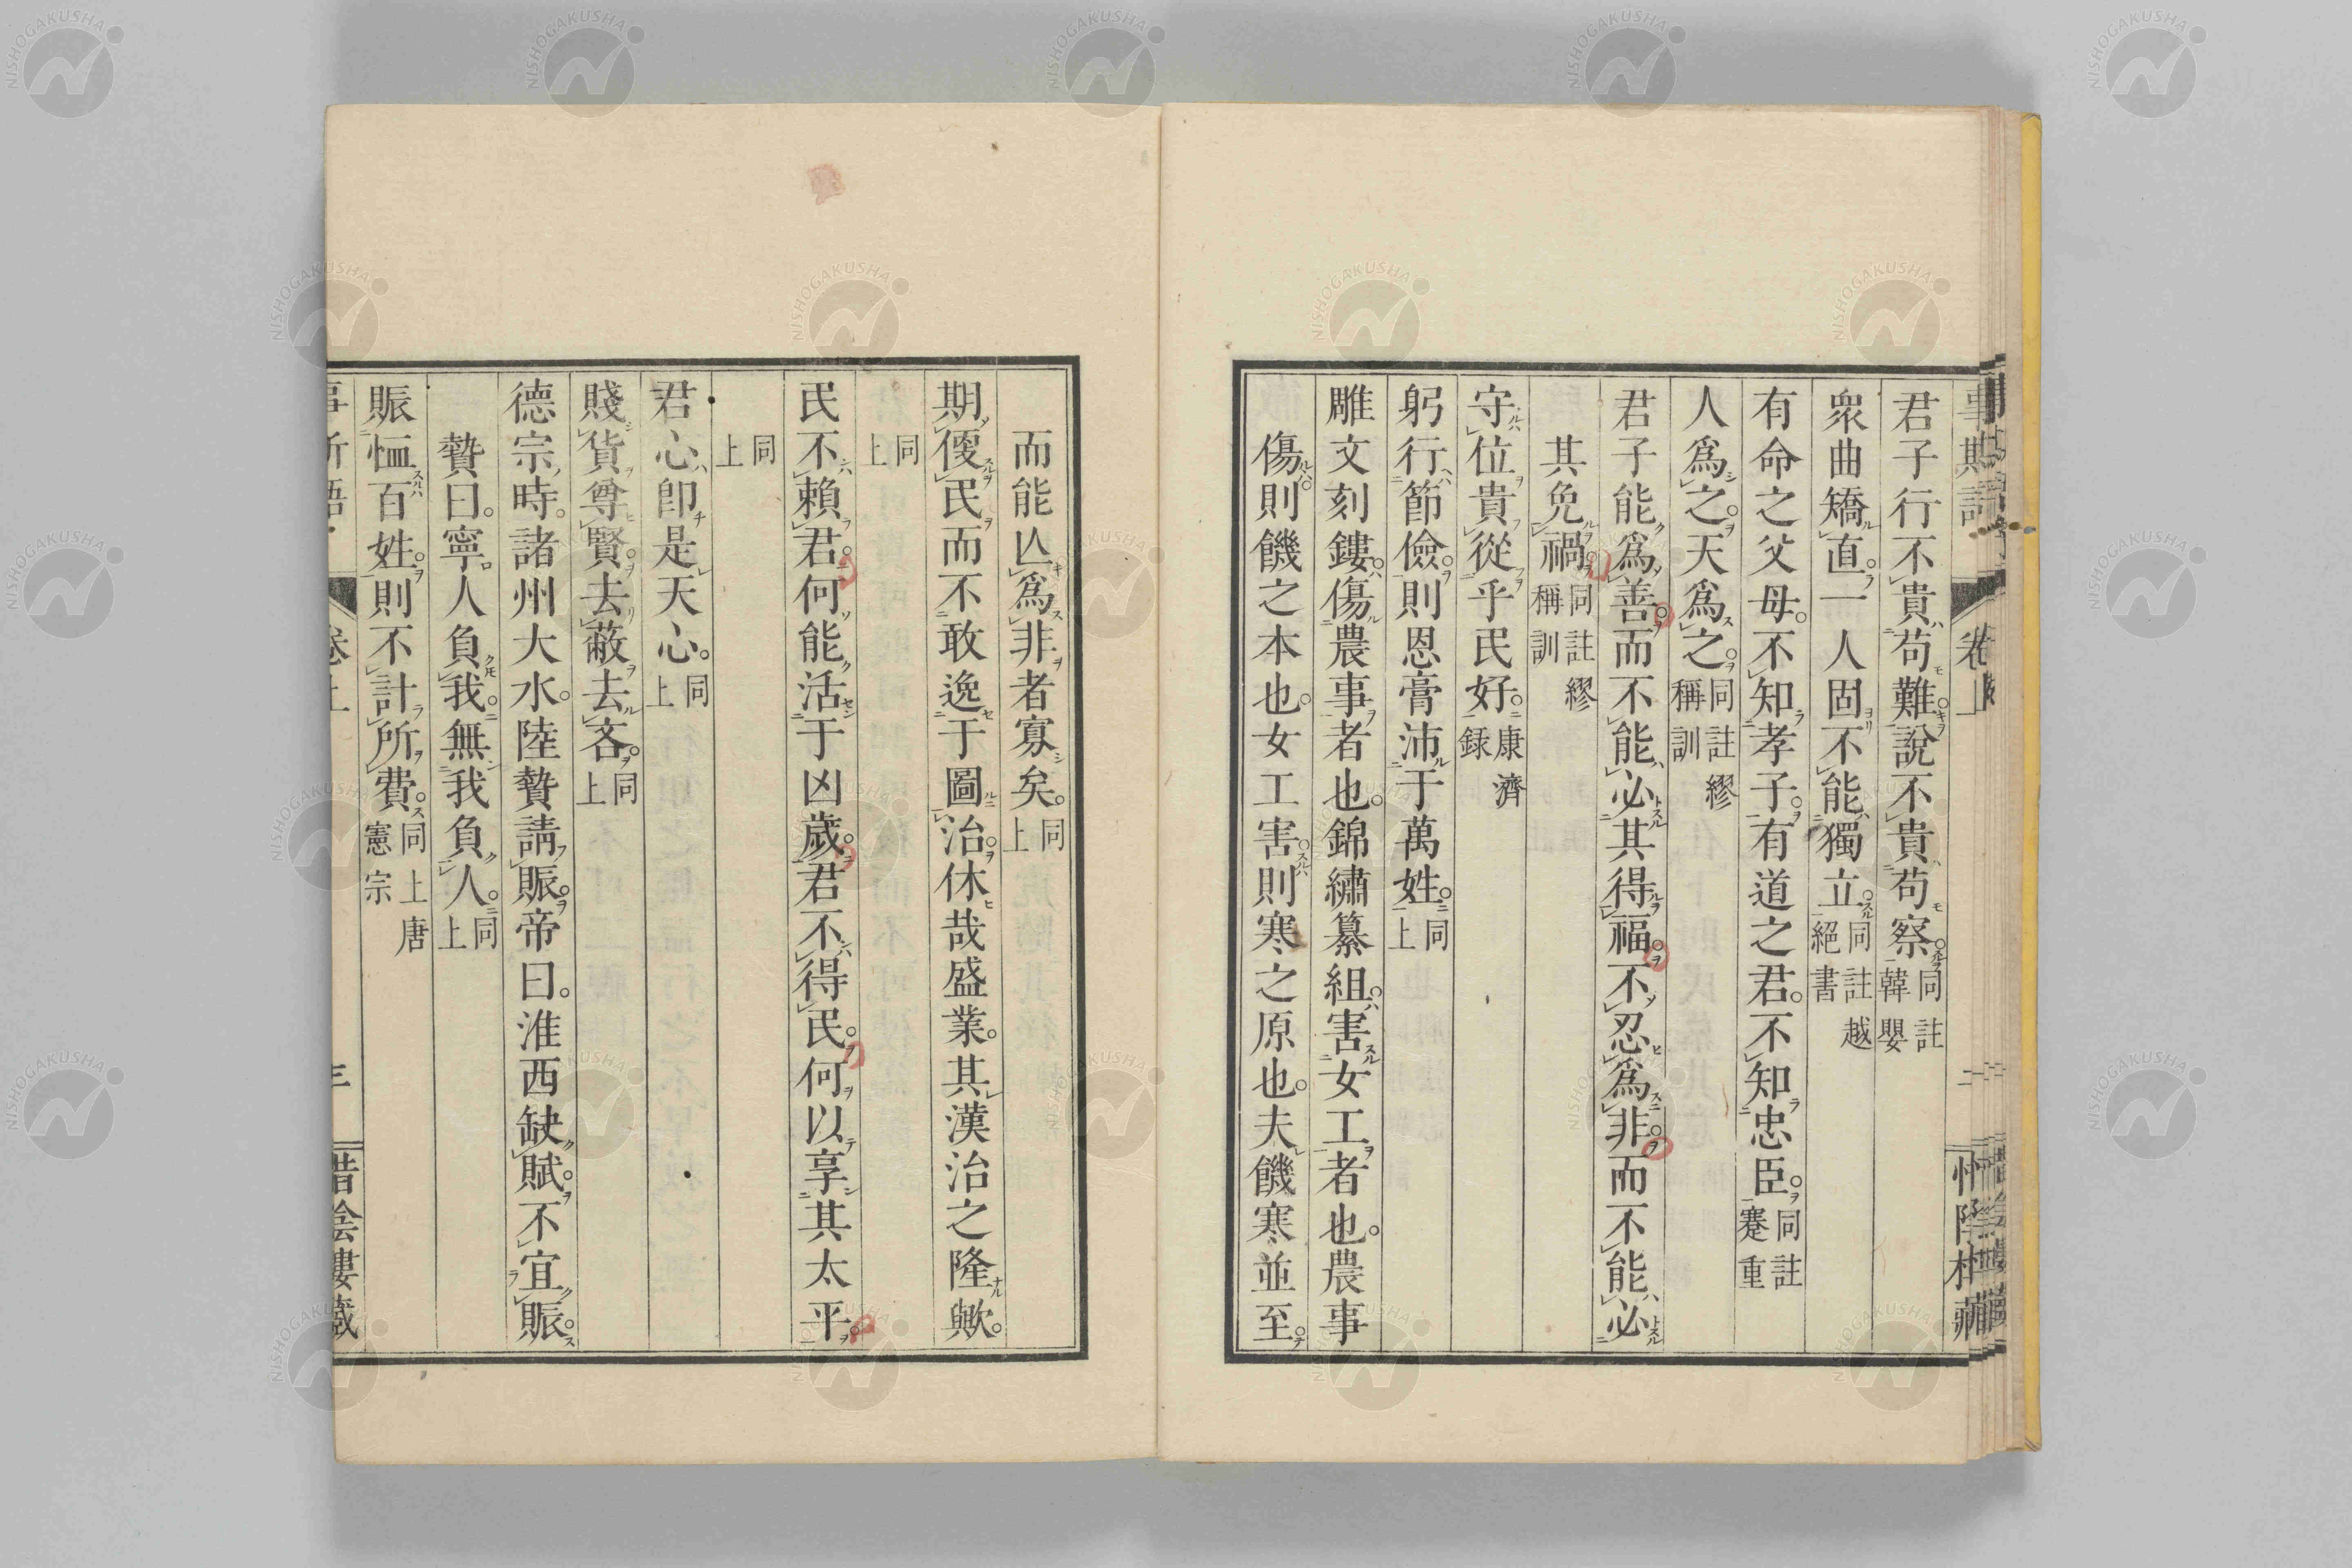 君子行不貴苟難。說不貴苟察。同註韓嬰
衆曲矯直。一人固不能獨立。同註越絕書
有命之父母。不知孝子。有道之君。不知忠臣。同註蹇重
人爲之。天爲之。同註繆稱訓
君子能爲善。而不能必其得福。不忍爲非。而不能必
其免禍。同註繆稱訓
守位貴從乎民好。康濟録
躬行節儉。則恩膏沛于萬姓。同上
雕文刻鏤。傷農事者也。錦繡纂組。害女工者也。農事
傷。則饑之本也。女工害。則寒之原也。夫饑寒並至。
而能亾爲非者寡矣。同上
期偠民而不敢逸于圖治。休哉盛業。其漢治之隆歟。
同上
民不賴君。何能活于凶歲。君不得民。何以享其太平。
同上
君心即是天心。同上
賤貨尊賢。去蔽去吝。同上
德宗時。諸州大水。陸贄請賑。帝曰。淮西缺賦。不宜賑。
贄曰。寧人負我。無我負人。同上
賑恤百姓。則不計所費。同上唐憲宗
卷上
三
惜陰樓藏
NISHOGAKUSHA